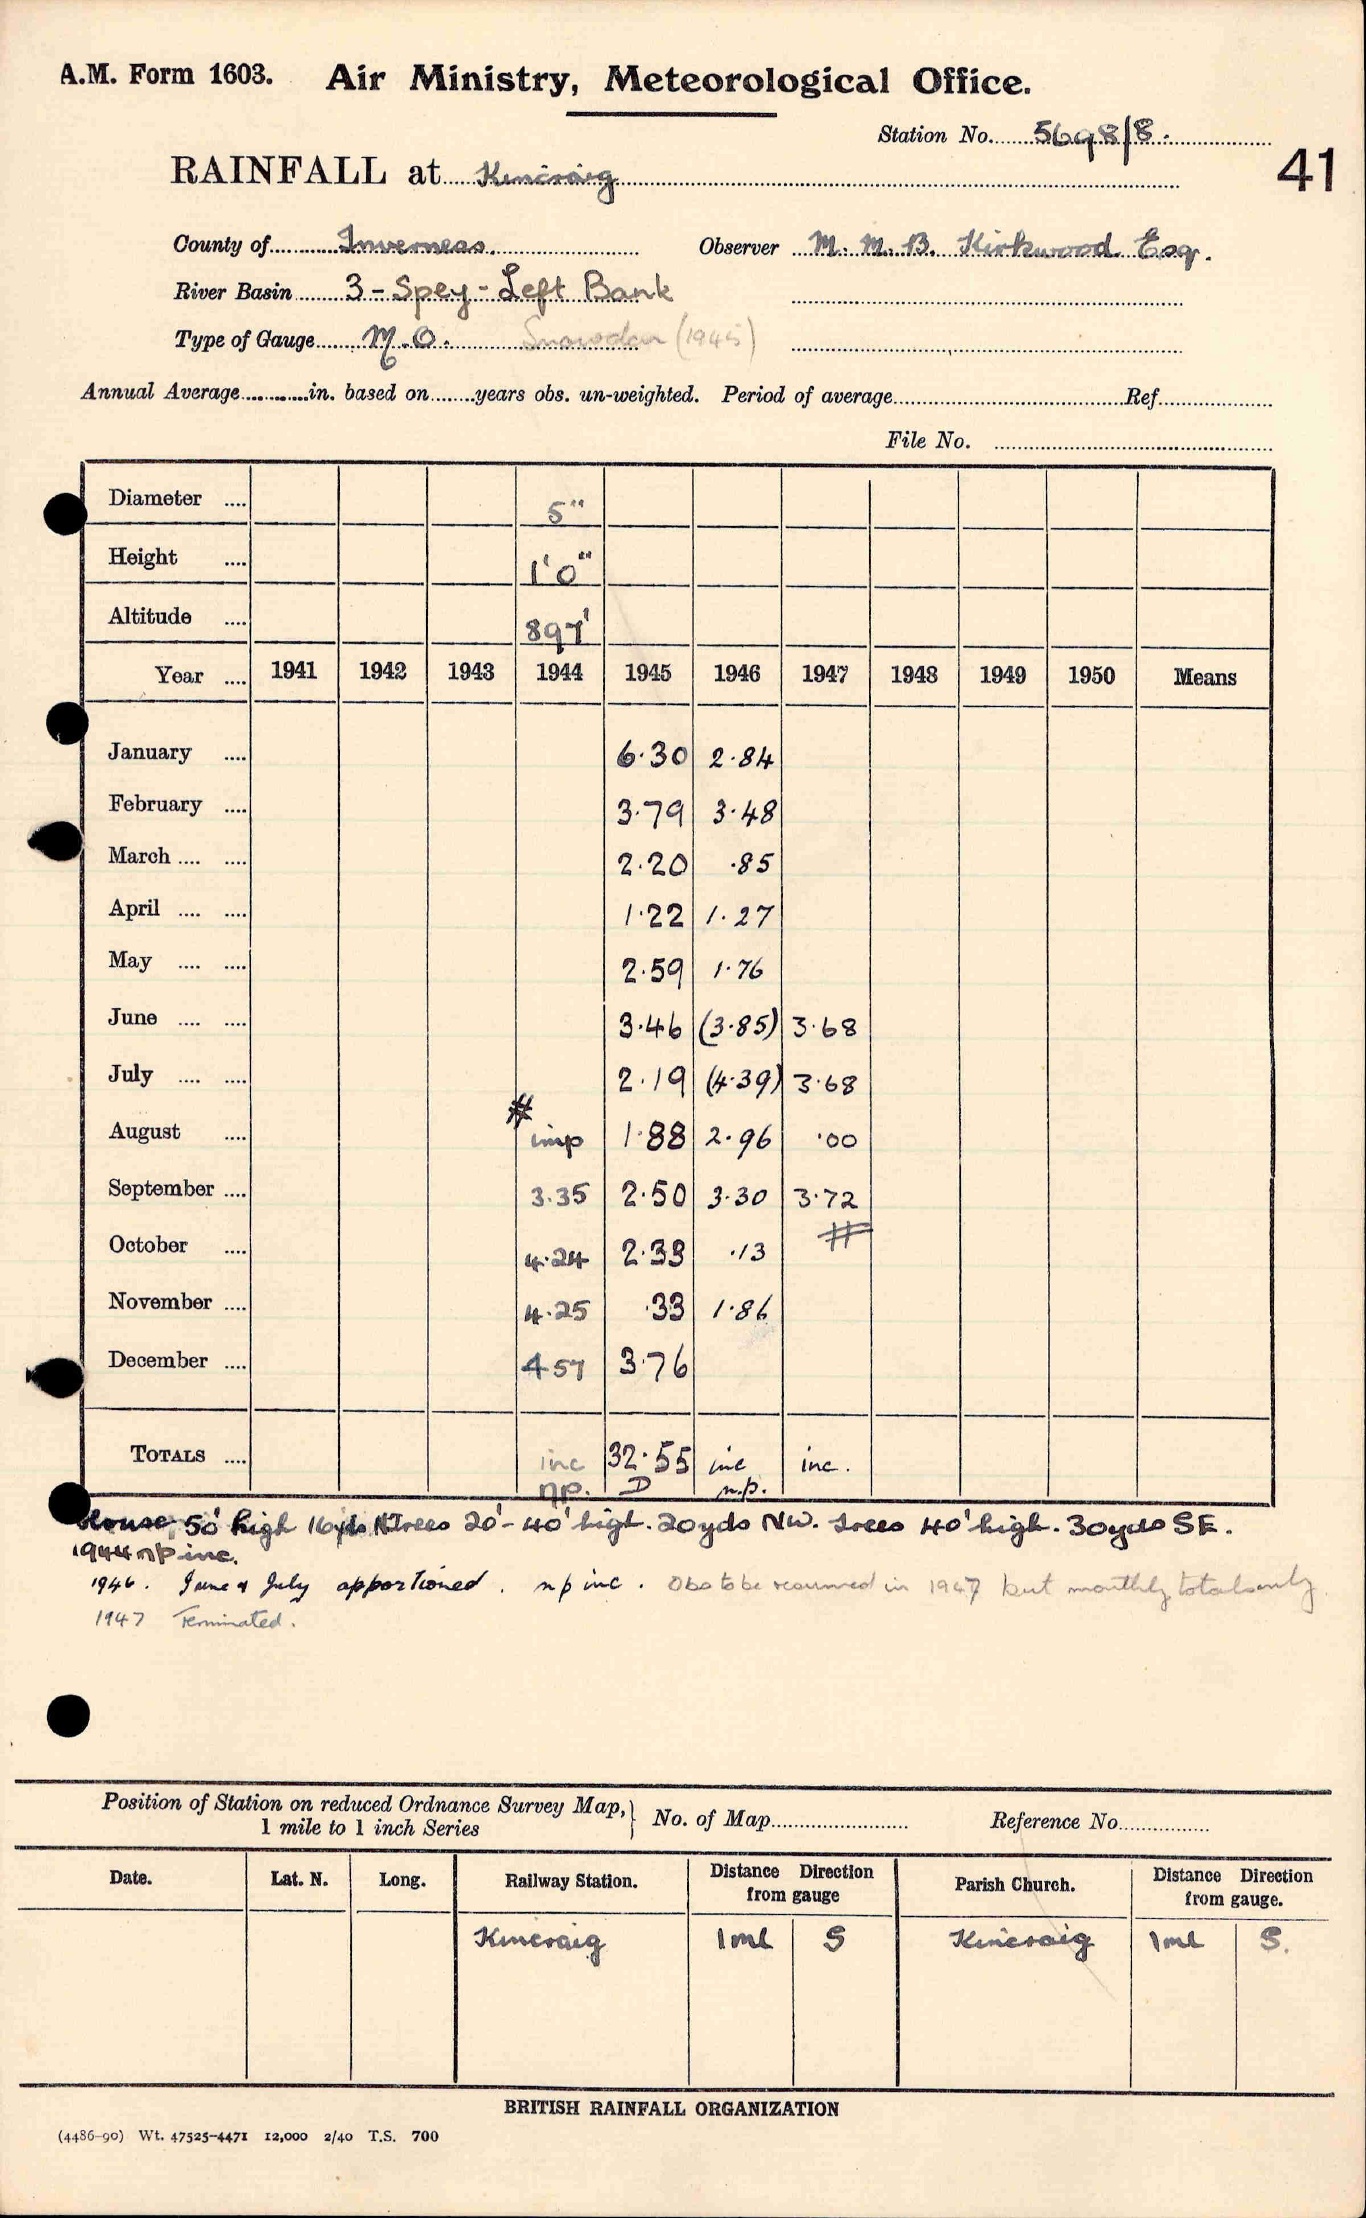 A.M. Form 1603. Air Ministry, Meteorological Office.
Station No. 5698/8.
41
RAINFALL at Kincraig
County of Inverness. Observer M. M. B. Kirkwood Esq.
River Basin 3 - Spey - Left Bank
Type of Gauge M.O. Snowdon (1945)
Annual Average in. based on years obs. un-weighted. Period of average Ref
File No.
Diameter 5"
Height 1'0"
Altitude 897'
Year 1941 1942 1943 1944 1945 1946 1947 1948 1949 1950 Means
January 6.30 2.84
February 3.79 3.48
March 2.20 .85
April 1.22 1.27
May 2.59 1.76
June 3.46 (3.85) 3.68
July 2.19 (4.39) 3.68
#
August imp 1.88 2.96 .00
September 3.35 2.50 3.30 3.72
#
October 4.24 2.33 .13
November 4.25 .33 1.86
December 4 57 3.76
TOTALS inc 32.55 inc inc.
np. D n.p.
House 50' high 16yds N Trees 20'-40' high. 20yds NW. Trees 40' high. 30yds SE.
1944 np inc.
1946. June & July apportioned. np inc. Obs to be resumed in 1947 but monthly totals only.
1947 Terminated.
Position of Station on reduced Ordnance Survey Map, 1 mile to 1 inch Series } No. of Map Reference No.
Date. Lat. N. Long. Railway Station. Distance Direction from gauge Parish Church. Distance Direction from gauge.
Kincraig 1ml S Kincraig 1ml S.
BRITISH RAINFALL ORGANIZATION
(4486-90) Wt. 47525-4471 12,000 2/40 T.S. 700